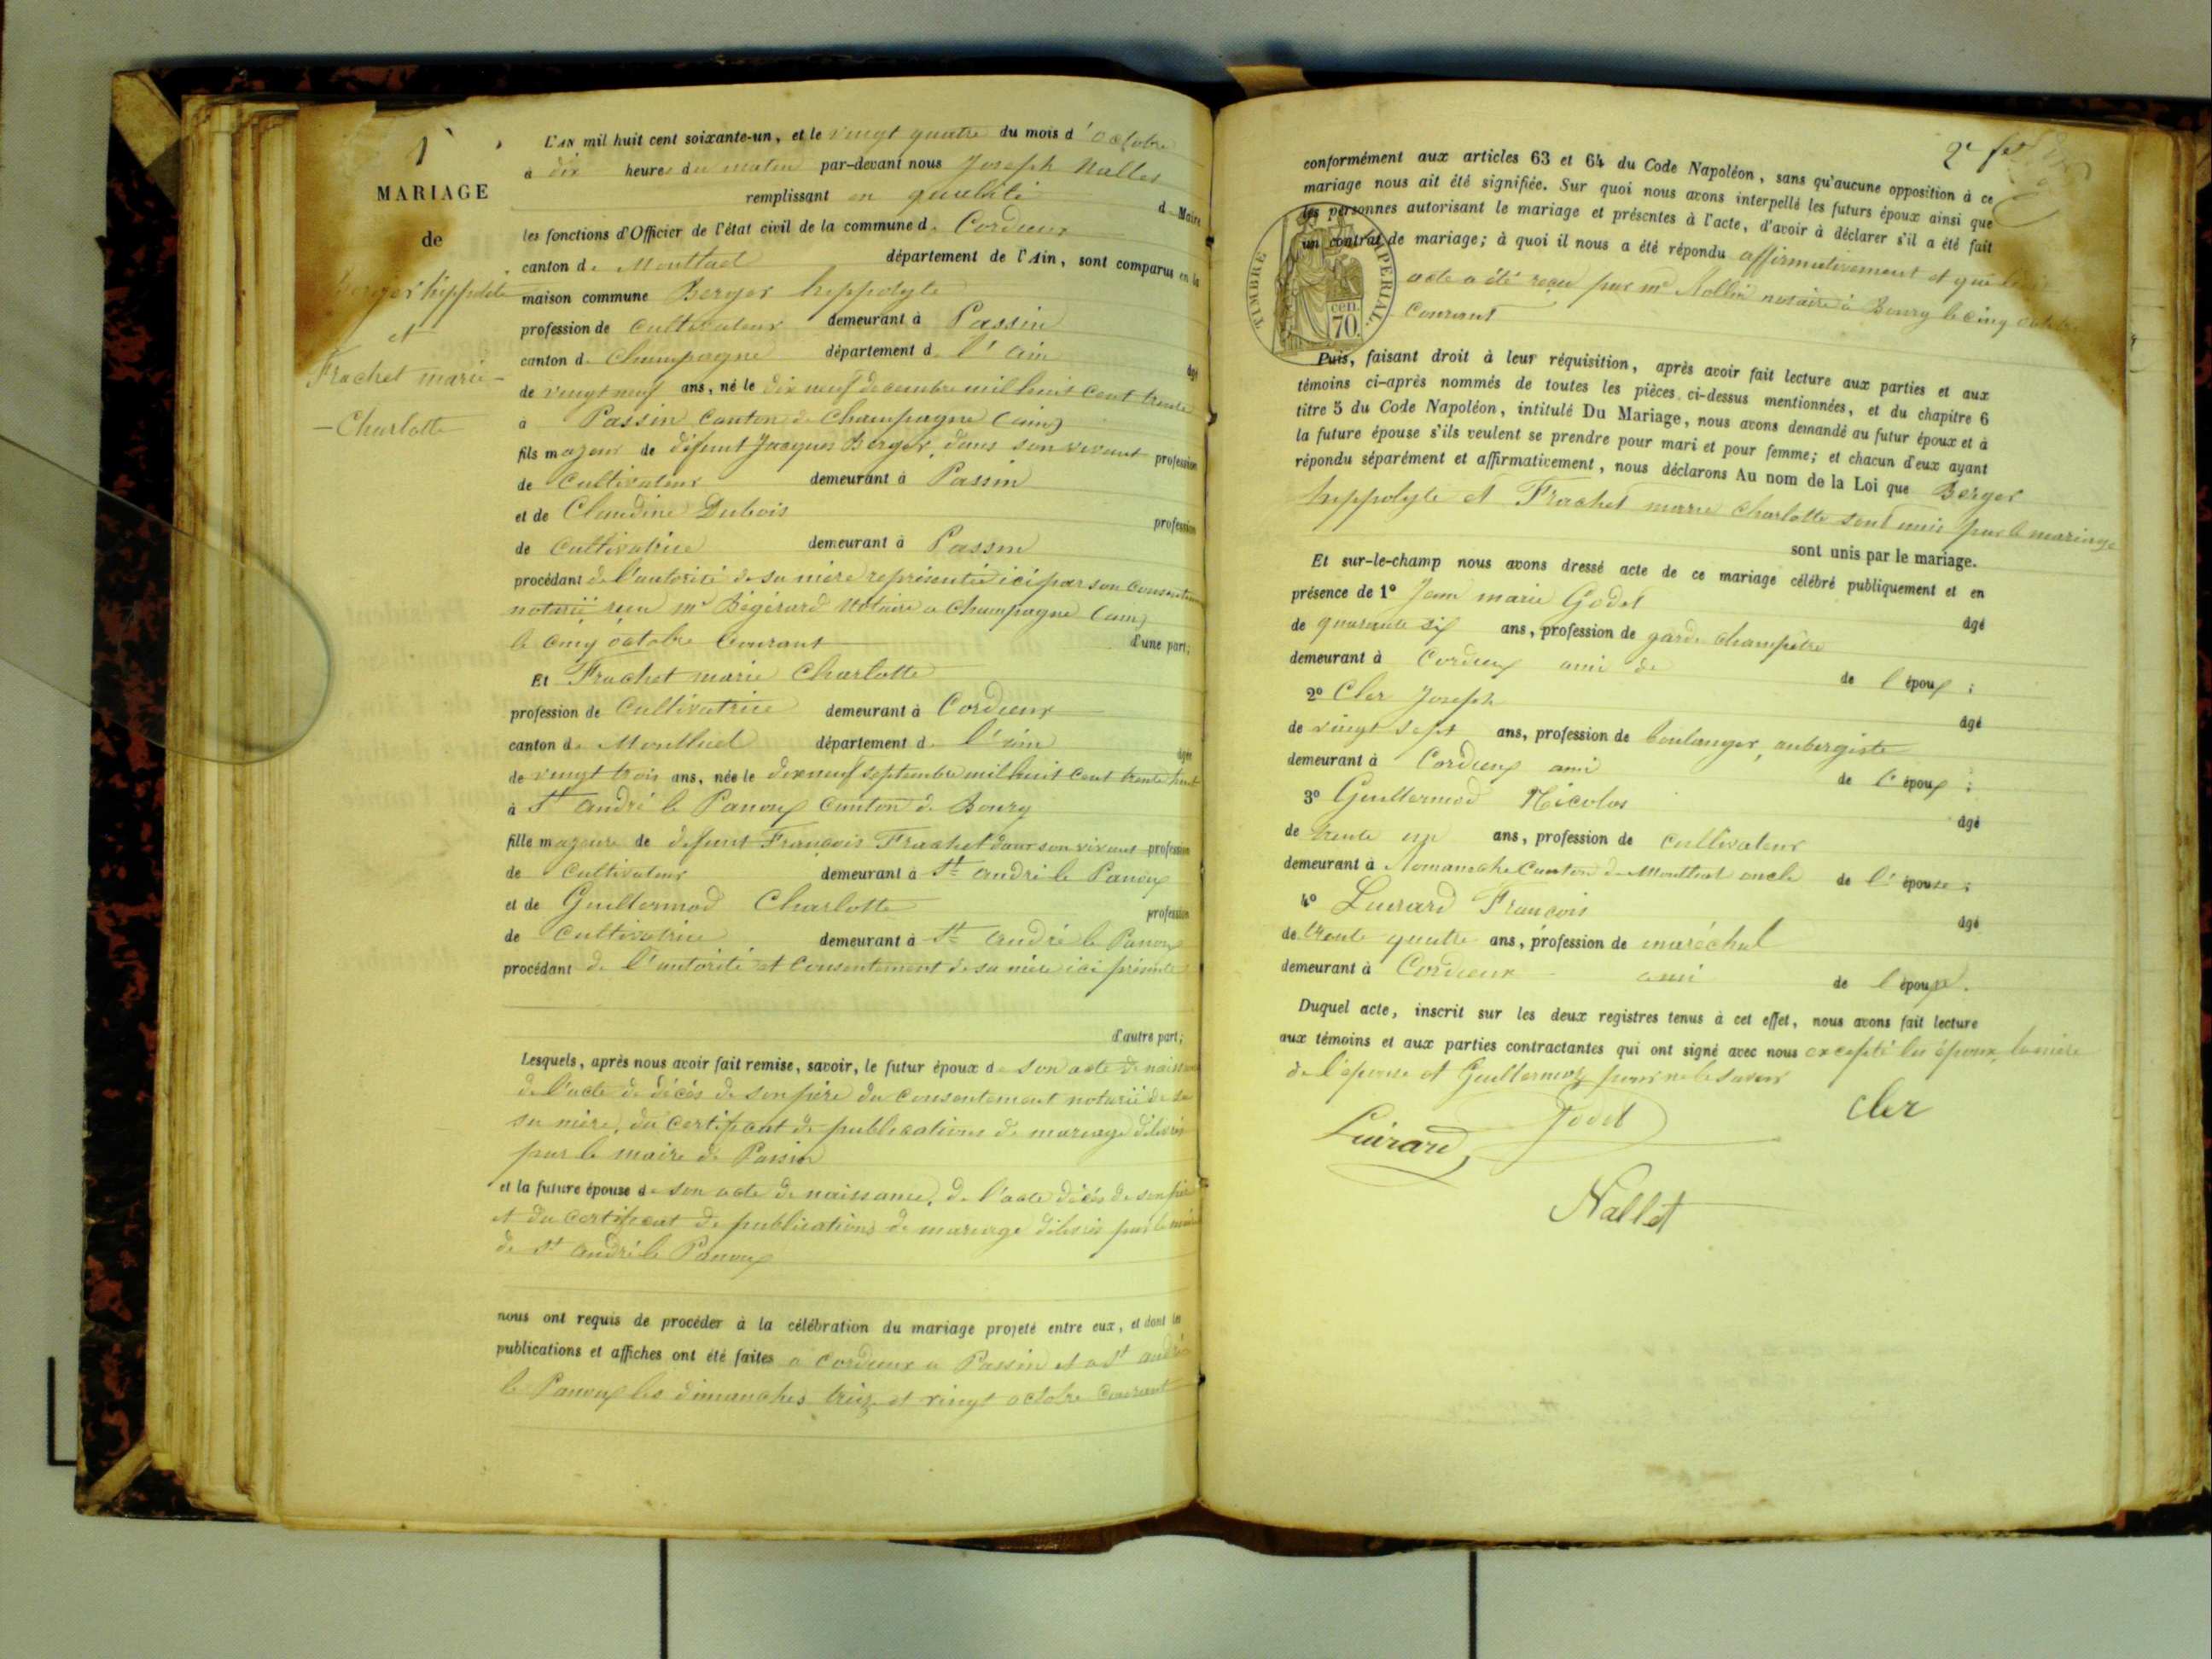 1
MARIAGE
de
Berger hippolite
et
Frachet marie-
-Charlotte
L'AN mil huit cent soixante-un, et le vingt quatre du mois d'octobre
à dix heures du matin par-devant nous Joseph Nallet
remplissant en qualité d Maire
les fonctions d'Officier de l'état civil de la commune de Cordieux
canton de Montluel département de l'Ain, sont comparus en la
maison commune Berger hippolyte
profession de Cultivateur demeurant à Passin
canton de Champagne département d l'ain
âgé
de vingt neuf ans, né le dix neuf decembre mil huit cent trente
à Passin Canton de Champagne (ain)
fils majeur de défunt Jacques Berger, dans son vivant profession
de Cultivateur demeurant à Passin
et de Claudine Dubois profession
de Cultivatrice demeurant à Passin
procédant de l'autorité de sa mère représentée ici par son consentement
notarié reçu me Bégérard Notaire a Champagne (ain)
le cinq octobre Courant d'une part;
Et Frachet marie Charlotte
profession de Cultivatrice demeurant à Cordieux
canton de Montluel département d l'ain
âgée
de vingt trois ans, née le dix neuf septembre mil huit cent trente huit
à St andré le Panoux Canton de Bourg
fille majeure de defunt François Frachet dans son vivant profession
de Cultivateur demeurant à St andré le Panoux
et de Guillermod Charlotte profession
de Cultivatrice demeurant à St andré le Panoux
procédant de l'autorité et Consentement de sa mère ici présente
d'autre part;
Lesquels, après nous avoir fait remise, savoir, le futur époux de son acte de naissance
de l'acte de décès de son père du consentement notarié de sa
sa mère, du certificat de publications de mariage délivré
par le maire de Passin
et la future épouse de son acte de naissance, de l'acte décès de son père
et du certificat de publications de mariage délivré par le maire
de St andré le Panoux
nous ont requis de procéder à la célébration du mariage projeté entre eux, et dont les
publications et affiches ont été faites a Cordieux a Passin et a St andré
le Panoux les dimanches treize et vingt octobre Courant
2e fet
conformément aux articles 63 et 64 du Code Napoléon, sans qu'aucune opposition à ce
mariage nous ait été signifiée. Sur quoi nous avons interpellé les futurs époux ainsi que
les personnes autorisant le mariage et présentes à l'acte, d'avoir à déclarer s'il a été fait
un contrat de mariage; à quoi il nous a été répondu affirmativement et que
acte a été reçu par me Rollin notaire à Bourg le cinq octobre
Courant
TIMBRE IMPERIAL.
70 cen.
Puis, faisant droit à leur réquisition, après avoir fait lecture aux parties et aux
témoins ci-après nommés de toutes les pièces ci-dessus mentionnées, et du chapitre 6
titre 5 du Code Napoléon, intitulé Du Mariage, nous avons demandé au futur époux et à
la future épouse s'ils veulent se prendre pour mari et pour femme; et chacun d'eux ayant
répondu séparément et affirmativement, nous déclarons Au nom de la Loi que Berger
hippolyte et Frachet marie Charlotte sont unis par le mariage
sont unis par le mariage.
Et sur-le-champ nous avons dressé acte de ce mariage célébré publiquement et en
présence de 1° Jean marie Godet
âgé
de quarante six ans, profession de garde champêtre
demeurant à Cordieux ami de de l'époux;
2° Cler Joseph
âgé
de vingt sept ans, profession de boulanger, aubergiste
demeurant à Cordieux ami de l'époux;
3° Guillermod Nicolas
âgé
de trente un ans, profession de cultivateur
demeurant à Romanèche Canton de Montluel oncle de l'épouse;
4° Luirard François
âgé
de trente quatre ans, profession de maréchal
demeurant à Cordieux ami de l'époux.
Duquel acte, inscrit sur les deux registres tenus à cet effet, nous avons fait lecture
aux témoins et aux parties contractantes qui ont signé avec nous excepté les époux, la mère
de l'épouse et Guillermoz pour ne le savoir
Luirard, Godet Cler
Nallet